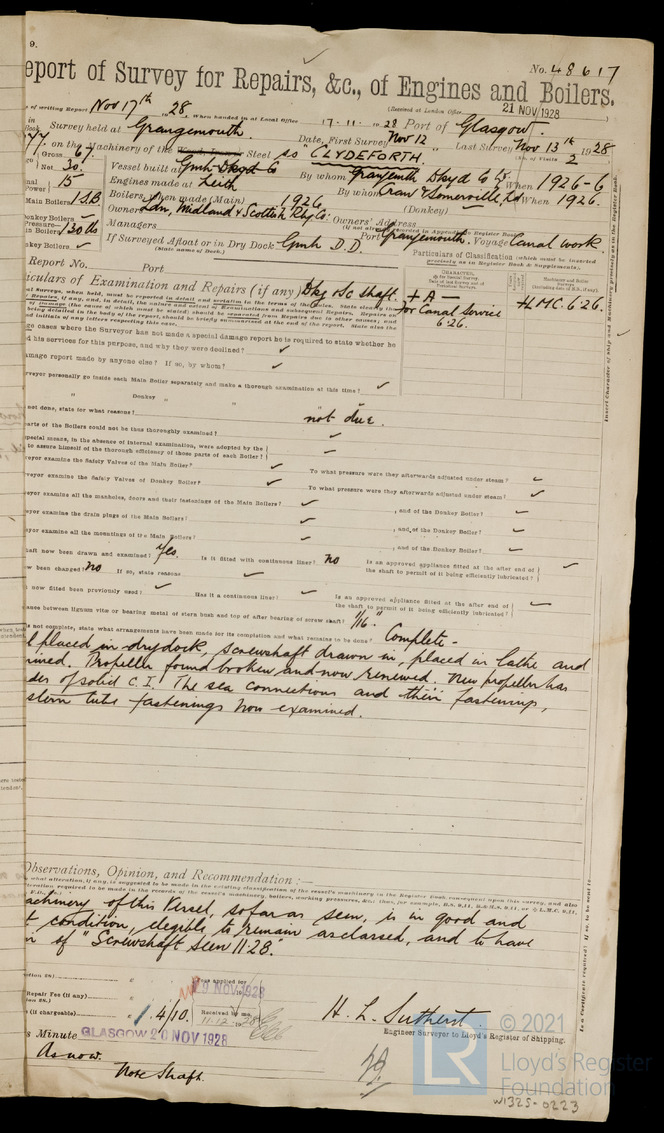 9.
No. 48617
eport of Survey for Repairs, &c., of Engines and Boilers.
(Received at London Office 21 NOV 1928)
of writing Report Nov 17th 1928 When handed in at Local Office 17.11.1928 Port of Glasgow.
Survey held at Grangemouth. Date, First Survey Nov 12 Last Survey Nov 13th 1928
(No. of Visits 2)
77. on the Machinery of the Wood, Iron or Steel ss "CLYDEFORTH.
Gross 67. Vessel built at Gmth Dkyd Co By whom Grangemth Dkyd Co Ld. When 1926-6
Net 30. Engines made at Leith By whom Cran & Somerville, Ld When 1926.
15 Boilers, when made (Main) 1926 (Donkey)
Main Boilers 1 S.B Owners Ldn, Midland & Scottish Rly Co. Owners' Address
Donkey Boilers Managers (if not already recorded in Appendix to Register Book.)
in Boilers 130 lbs Port Grangemouth. Voyage Canal work
nkey Boilers If Surveyed Afloat or in Dry Dock Gmth D.D.
(State name of Dock.)
Particulars of Classification (which must be inserted precisely as in Register Book & Supplements).
Report No. Port
iculars of Examination and Repairs (if any) Dkg & Sc shaft.
+ A -
For Canal Service
6.26.
+LMC.6.26.
ge cases where the Surveyor has not made a special damage report he is required to state whether he
d his services for this purpose, and why they were declined?
amage report made by anyone else? If so, by whom?
rveyor personally go inside each Main Boiler separately and make a thorough examination at this time?
" Donkey " "
not done, state for what reasons? not due.
arts of the Boilers could not be thus thoroughly examined?
special means, in the absence of internal examination, were adopted by the
to assure himself of the thorough efficiency of those parts of each Boiler?
eyor examine the Safety Valves of the Main Boiler? To what pressure were they afterwards adjusted under steam?
veyor examine the Safety Valves of Donkey Boiler? To what pressure were they afterwards adjusted under steam?
veyor examine all the manholes, doors and their fastenings of the Main Boilers? , and of the Donkey Boiler?
eyor examine the drain plugs of the Main Boilers? , and of the Donkey Boiler?
eyor examine all the mountings of the Main Boilers? , and of the Donkey Boiler?
haft now been drawn and examined? Yes. Is it fitted with continuous liner? no Is an approved appliance fitted at the after end of the shaft to permit of it being efficiently lubricated?
ow been changed? no If so, state reasons
now fitted been previously used? Has it a continuous liner? Is an approved appliance fitted at the after end of the shaft to permit of it being efficiently lubricated?
ance between lignum vitæ or bearing metal of stern bush and top of after bearing of screw shaft? 1/16".
is not complete, state what arrangements have been made for its completion and what remains to be done. Complete -
l placed in drydock, screwshaft drawn in, placed in lathe and
mined. Propeller found broken and now renewed. New propeller has
des of solid C.I. The sea connections and their fastenings,
stern tube fastenings now examined.
Observations, Opinion, and Recommendation :—
achinery of this Vessel, so far as seen, is in good and
t condition, elegible to remain as classed, and to have
n of "Screwshaft seen 11.28".
Fees applied for
20 NOV 1928
Repair Fee (if any)
(if chargeable) 1. 4/10. Received by me,
11.12.1928
H. L. Sutherst.
Engineer Surveyor to Lloyd's Register of Shipping.
s Minute GLASGOW 20 NOV 1928
As now.
Note Shaft.
Insert Character of Ship and Machinery precisely as in the Register Book.
Is a Certificate required? If so, to be sent to
© 2021
LR
Lloyd's Register
Foundation
W1325-0223